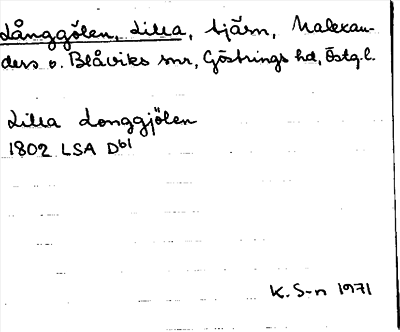 Långgölen, Lilla, tjärn, Malexan-
ders o. Blåviks snr, Göstrings hd, Östg.l.
Lilla Longgjölen
1802 LSA Dbl
K. S-n 1971